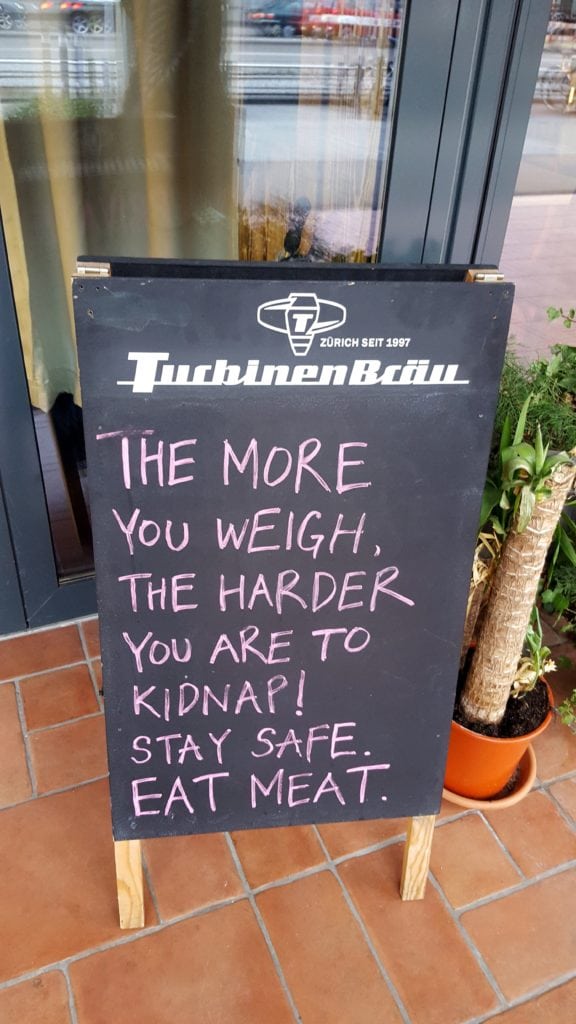 T
ZÜRICH SEIT 1997
TurbinenBräu
THE MORE
YOU WEIGH,
THE HARDER
YOU ARE TO
KIDNAP!
STAY SAFE.
EAT MEAT.